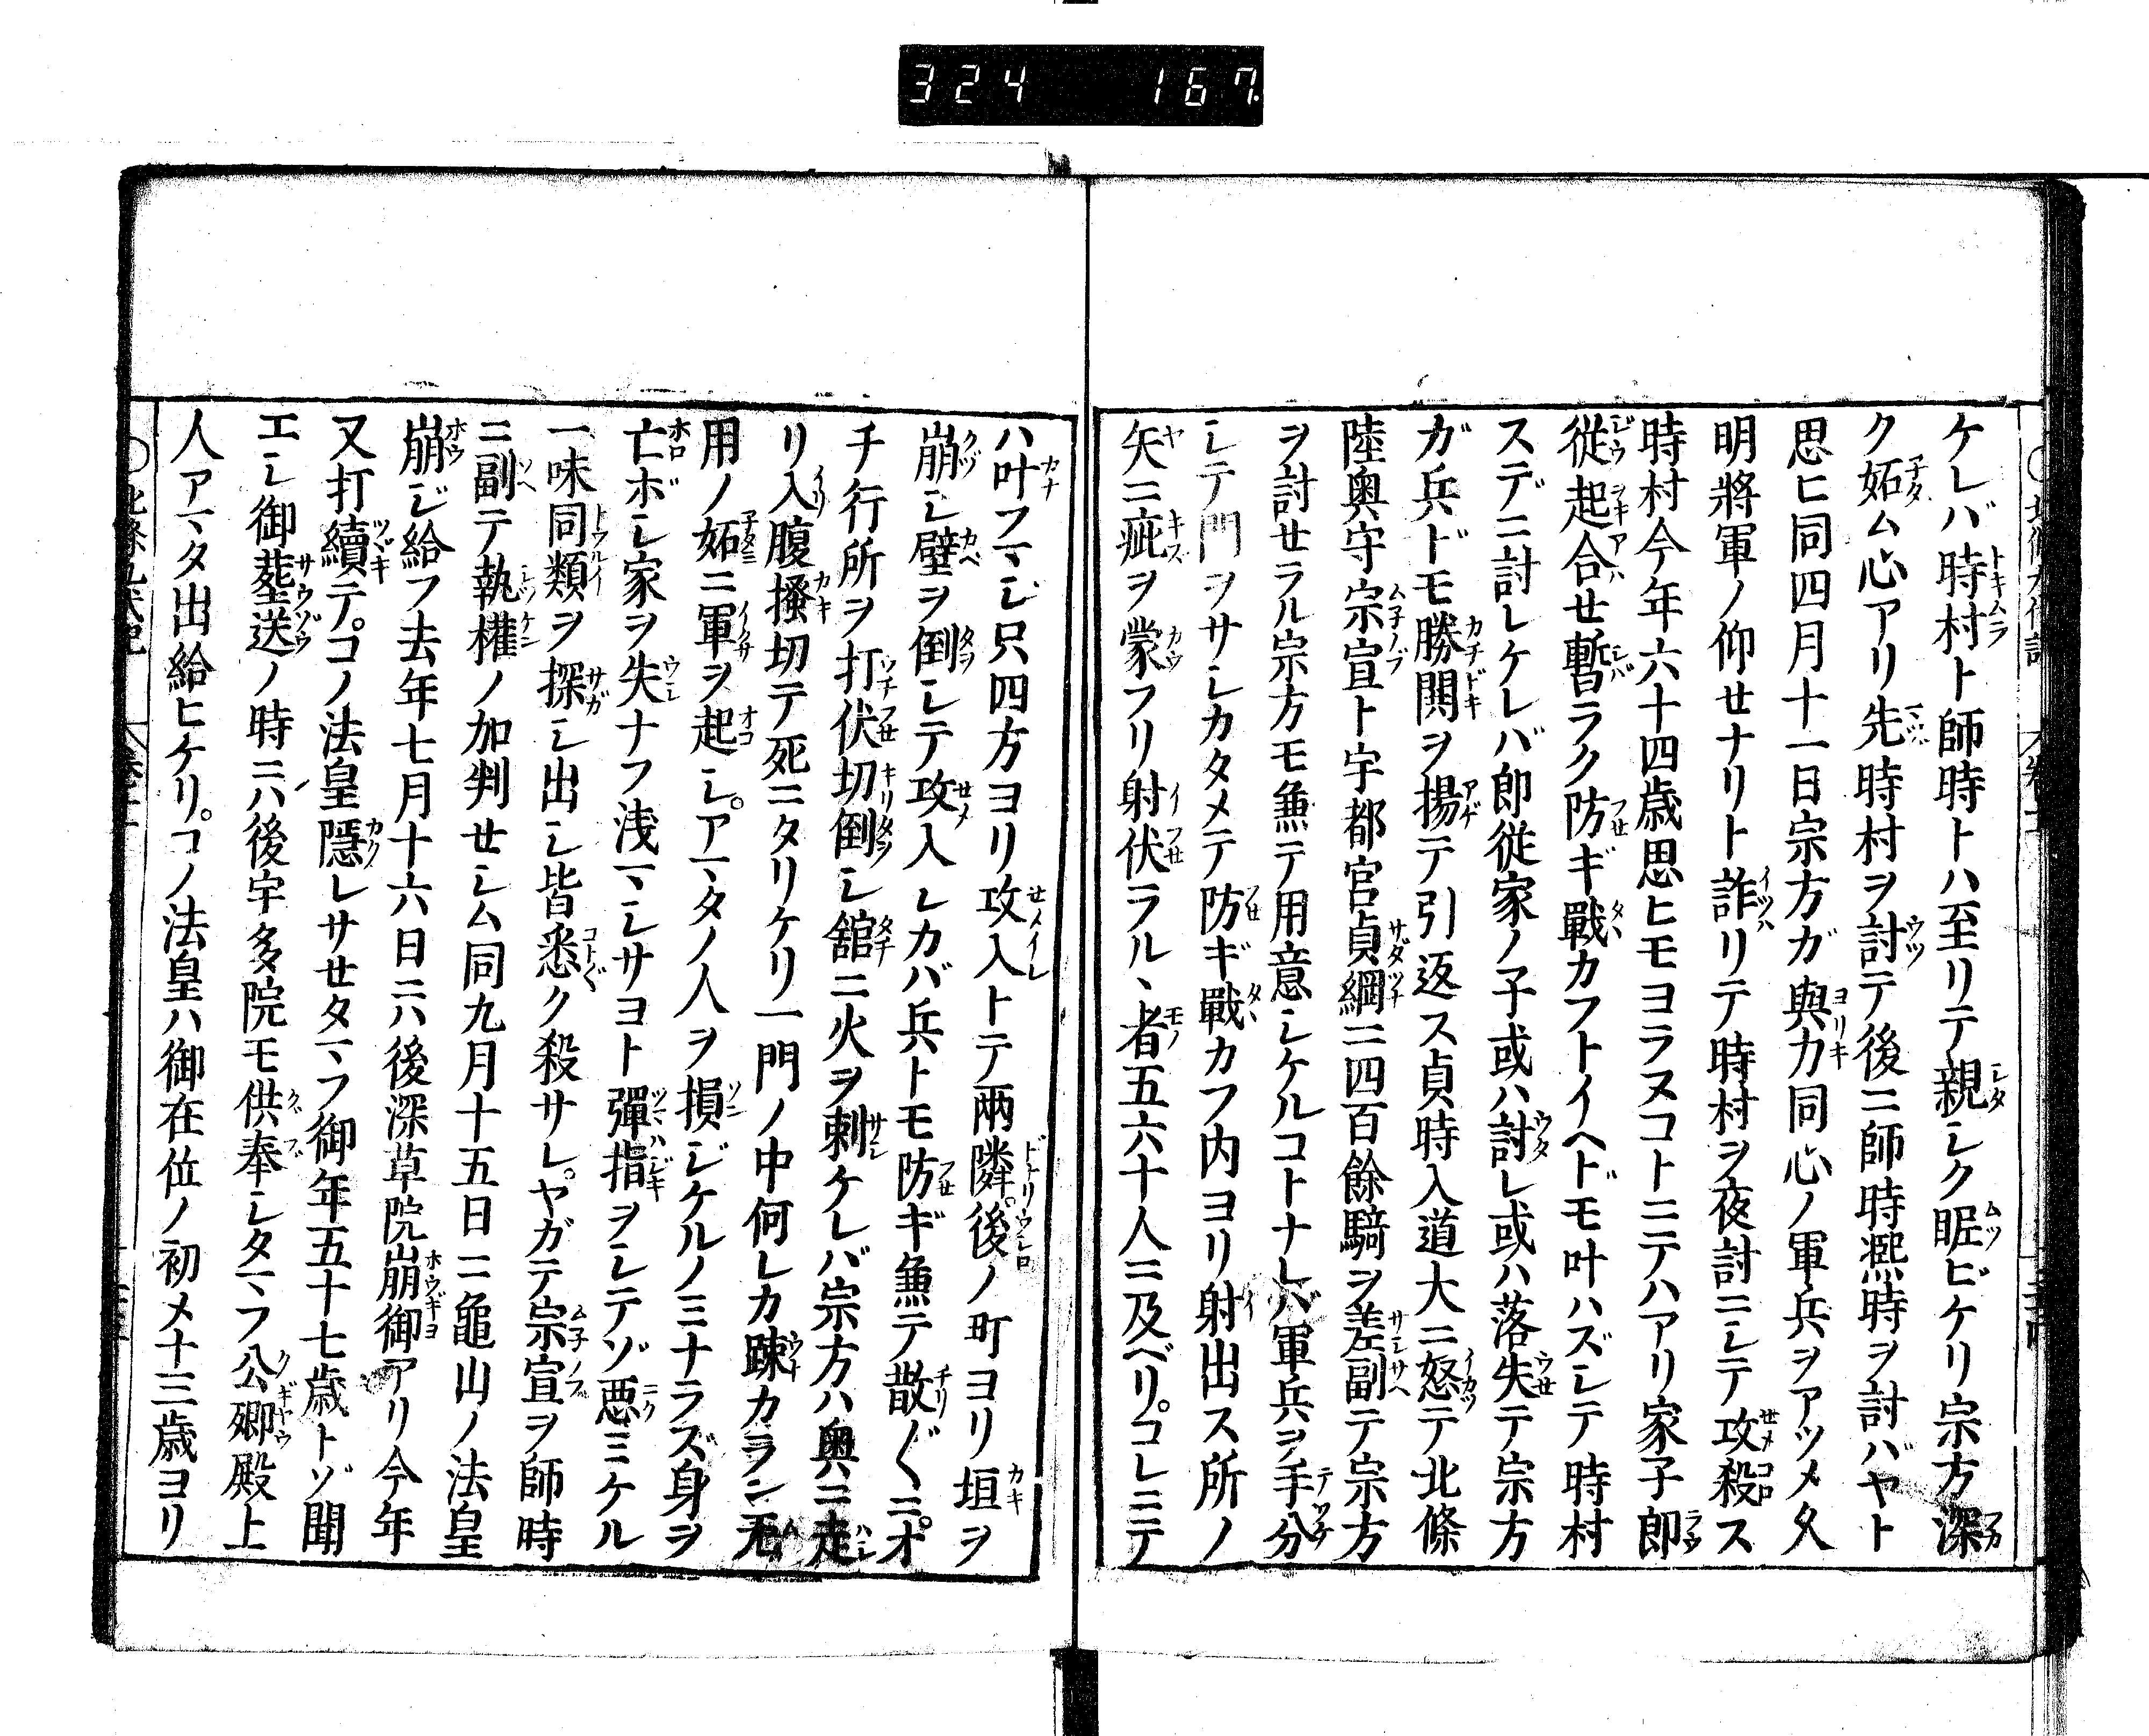 324 167
ケレバ時村ト師時トハ至リテ親シク眤ビケリ宗方深
ク妬ム心アリ先時村ヲ討テ後ニ師時凞時ヲ討バヤト
思ヒ同四月十一日宗方ガ與力同心ノ軍兵ヲアツメ夂
明將軍ノ仰セナリト詐リテ時村ヲ夜討ニシテ攻殺ス
時村今年六十四歳思ヒモヨラヌコトニテハアリ家子郎
從起合セ暫ラク防ギ戰カフトイヘドモ叶ハズシテ時村
スデニ討レケレバ郎從家ノ子或ハ討レ或ハ落失テ宗方
ガ兵ドモ勝鬨ヲ揚テ引返ス貞時入道大ニ怒テ北條
陸奥守宗宣ト宇都宮貞綱ニ四百餘騎ヲ差副テ宗方
ヲ討セラル宗方モ兼テ用意シケルコトナレバ軍兵ヲ手分
シテ門ヲサシカタメテ防ギ戰カフ内ヨリ射出ス所ノ
矢ニ疵ヲ蒙フリ射伏ラルヽ者五六十人ニ及ベリ。コレニテ
ハ叶フマジ只四方ヨリ攻入トテ兩隣。後ノ町ヨリ垣ヲ
崩シ壁ヲ倒シテ攻入レカバ兵トモ防ギ兼テ散〴〵ニ。オ
チ行所ヲ打伏切倒シ舘ニ火ヲ刺ケレバ宗方ハ奥ニ走
リ入腹搔切テ死ニタリケリ一門ノ中何レカ踈カラン無
用ノ妬ニ軍ヲ起シ。アマタノ人ヲ損ジケルノミナラズ身ヲ
亡ボシ家ヲ失ナフ浅マシサヨト彈指ヲシテゾ惡ミケル
一味同類ヲ探シ出シ皆悉ク殺サレ。ヤガテ宗宣ヲ師時
ニ副テ執權ノ加判セシム同九月十五日ニ龜山ノ法皇
崩ジ給フ去年七月十六日ニハ後深草院崩御アリ今年
又打續テ。コノ法皇隱レサセタマフ御年五十七歳トゾ聞
エシ御葬送ノ時ニハ後宇多院モ供奉シタマフ公卿殿上
人アマタ出給ヒケリ。コノ法皇ハ御在位ノ初メ十三歳ヨリ